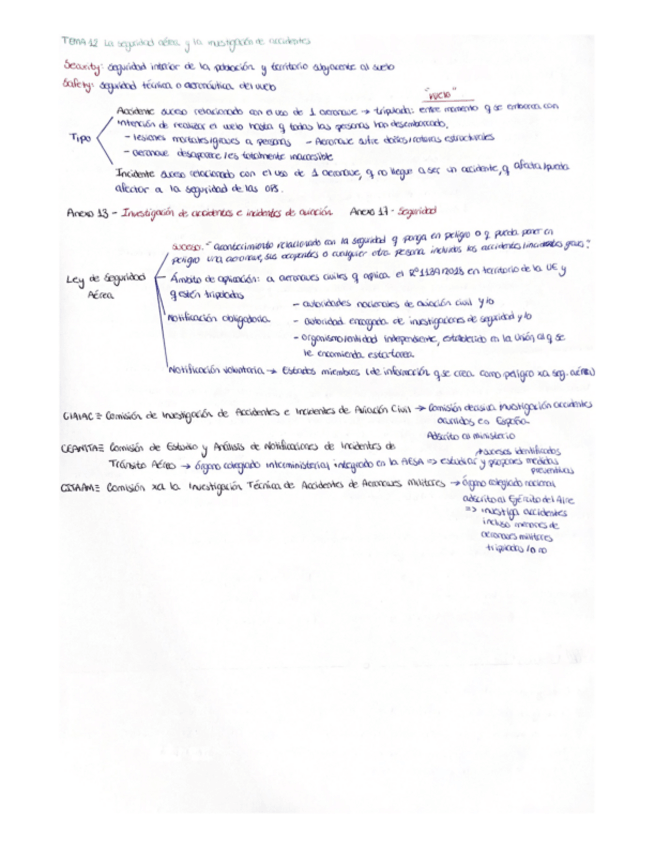 TEMA 12 La seguridad aérea y la investigación de accidentes
Security: seguridad interior de la población y territorio subyacente al suelo
Safety: seguridad técnica o aeronáutica del vuelo
"vuelo"
Accidente suceso relacionado con el uso de 1 aeronave → tripulada: entre momento q se embarca con
intención de realizar el vuelo hasta q todas las personas han desembarcado.
Tipo
- lesiones mortales/graves a personas - Aeronave sufre daños/roturas estructurales
- aeronave desaparece / es totalmente inaccesible
Incidente suceso relacionado con el uso de 1 aeronave, q no llegue a ser un accidente, q afecta/pueda
afectar a la seguridad de las OPS.
Anexo 13 - Investigación de accidentes e incidentes de aviación Anexo 17 - Seguridad
suceso: "acontecimiento relacionado con la seguridad q ponga en peligro o q pueda poner en
peligro una aeronave, sus ocupantes o cualquier otra persona incluidos los accidentes/incidentes graves"
Ley de Seguridad
Aérea
Ámbito de aplicación: a aeronaves civiles q aplica el Rº1139/2018 en territorio de la UE y
q estén tripuladas
Notificación obligatoria
- autoridades nacionales de aviación civil y/o
- autoridad encargada de investigaciones de seguridad y/o
- organismo/entidad independiente, establecido en la Unión, al q se
le encomienda esta tarea.
Notificación voluntaria → Estados miembros (de información q se crea como peligro xa seg. aérea)
CIAIAC ≡ Comisión de Investigación de Accidentes e Incidentes de Aviación Civil → Comisión decisiva investigación accidentes
ocurridos en España.
Adscrito al ministerio
CEANITA ≡ Comisión de Estudio y Análisis de Notificaciones de Incidentes de
Tránsito Aéreo → órgano colegiado interministerial, integrado en la AESA ⇒ estudiar y proponer medidas
preventivas
sucesos identificados
CITAAM ≡ Comisión xa la Investigación Técnica de Accidentes de Aeronaves Militares → órgano colegiado nacional
adscrito al Ejército del Aire
⇒ investiga accidentes
incluso menores de
aeronaves militares
tripuladas / o no